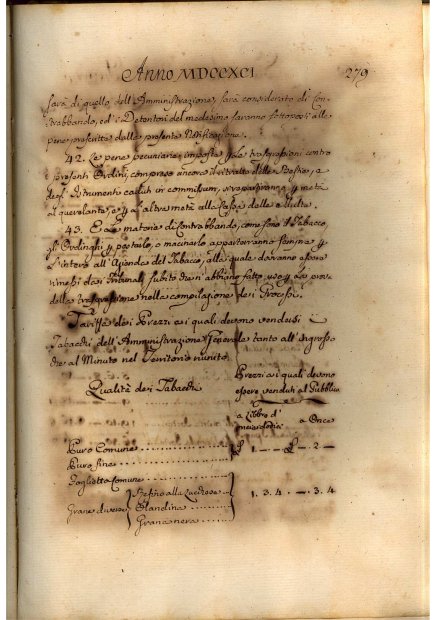 Anno MDCCXCI 279
sarà di quello dell'Amministrazione, sarà considerato di Con-
trabbando, ed i Detentori del medesimo saranno sottoposti alle
pene prescritte dalla presente Notificazione.
42. Le pene pecuniarie imposte per le trasgressioni contro
presenti Ordini, compreso ancora il ritratto delle Bestie, e
degl'Istrumenti caduti in commissum, si ripartiranno per metà
al querelante, e per l'altra metà alla Cassa delle
43. E le materie di Contrabbando, come sono il Tabacco,
gl'Ordinghi per pestarlo, o macinarlo apparterranno sempre per
l'intero all'Azienda del Tabacco, alla quale dovranno essere
rimessi dai Tribunali subito che ne abbiano fatto uso per la prova
della trasgressione nella compilazione dei Processi.
Tariffa dei Prezzi ai quali devono vendersi i
Tabacchi dell'Amministrazione Generale tanto all'ingrosso
che al Minuto nel Territorio riunito.
Qualità dei Tabacchi
Prezzi ai quali devono
essere venduti al Pubblico
a Libbre d'
a Once
Puro Comune £ 1. — — £ — 2. —
Puro fine
Foglietta Comune
Grane diverse
Rapino alla
Olandina
Grana nera
1. 3. 4. — . 3. 4